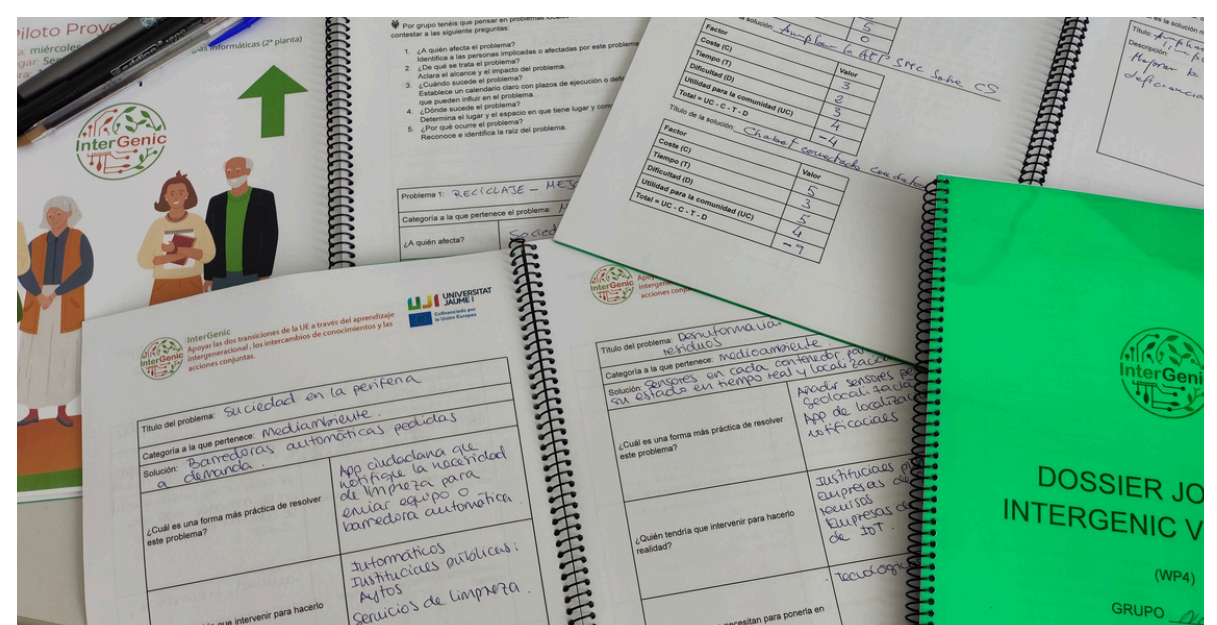 Piloto Proy
miércoles
informáticas (2ª planta)
InterGenic
Por grupo tenéis que pensar en problemas
contestar a las siguiente preguntas:
1. ¿A quién afecta el problema?
Identifica a las personas implicadas o afectadas por este problema
2. ¿De qué se trata el problema?
Aclara el alcance y el impacto del problema.
3. ¿Cuándo sucede el problema?
Establece un calendario claro con plazos de ejecución o
que pueden influir en el problema.
4. ¿Dónde sucede el problema?
Determina el lugar y el espacio en que tiene lugar y
5. ¿Por qué ocurre el problema?
Reconoce e identifica la raíz del problema.
Problema 1: RECICLAJE -
Categoría a la que pertenece el problema:
¿A quién afecta?
Factor Valor
Coste (C) 3
Tiempo (T) 2
Dificultad (D) 3
Utilidad para la comunidad (UC) 4
Total = UC - C - T - D -4
Título de la solución: Chabot conectado con
Factor Valor
Coste (C) 5
Tiempo (T) 3
Dificultad (D) 5
Utilidad para la comunidad (UC) 4
Total = UC - C - T - D
es la solución
Título:
Descripción:
Mejorar la
InterGenic
InterGenic
Apoyar las dos transiciones de la UE a través del aprendizaje
intergeneracional, los intercambios de conocimientos y las
acciones conjuntas.
UJI UNIVERSITAT
JAUME I
Cofinanciado por
la Unión Europea
Título del problema: Suciedad en la periferia
Categoría a la que pertenece: Mediambiente.
Solución: Barredoras automáticas pedidas
a demanda.
¿Cuál es una forma más práctica de resolver
este problema?
App ciudadana que
notifique la necesidad
de limpieza para
enviar equipo o
barredora automática.
intervenir para hacerlo
Informáticos
Instituciones públicas:
Aytos
Servicios de limpieza.
InterGenic
acciones
Título del problema:
residuos
Categoría a la que pertenece: medioambiente.
Solución: Sensores en cada contenedor,
su estado en tiempo real y
¿Cuál es una forma más práctica de resolver
este problema?
Añadir sensores
App de
notificaciones
¿Quién tendría que intervenir para hacerlo
realidad?
Instituciones
Empresas de
Empresas
de IoT.
necesitan para ponerla en
InterGeni
DOSSIER JO
INTERGENIC V
(WP4)
GRUPO